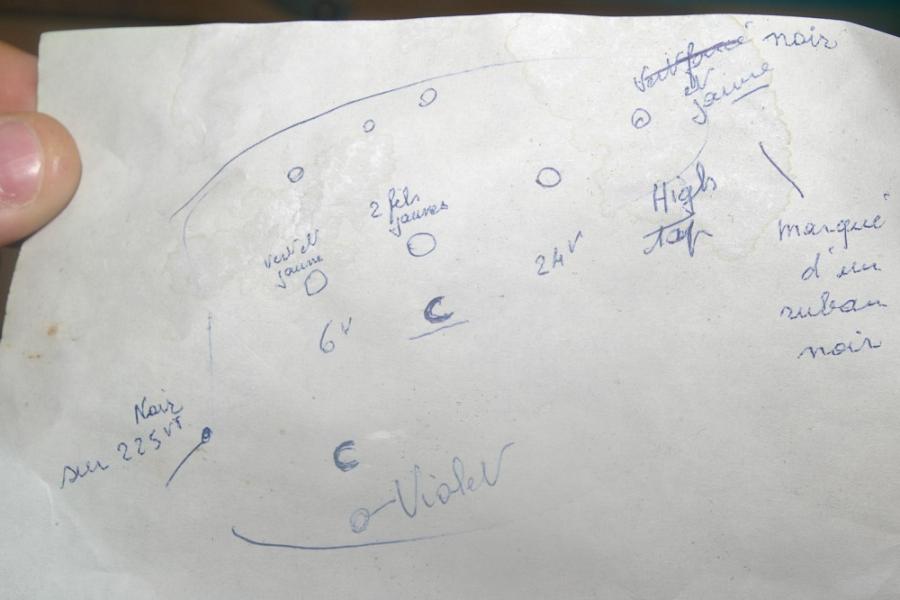 noir
et
jaune
2 fils
jaunes
High
tap
vert et
jaune
24V
marqué
d'un
ruban
noir
6V
C
Noir
sur 225VT
C
Violet